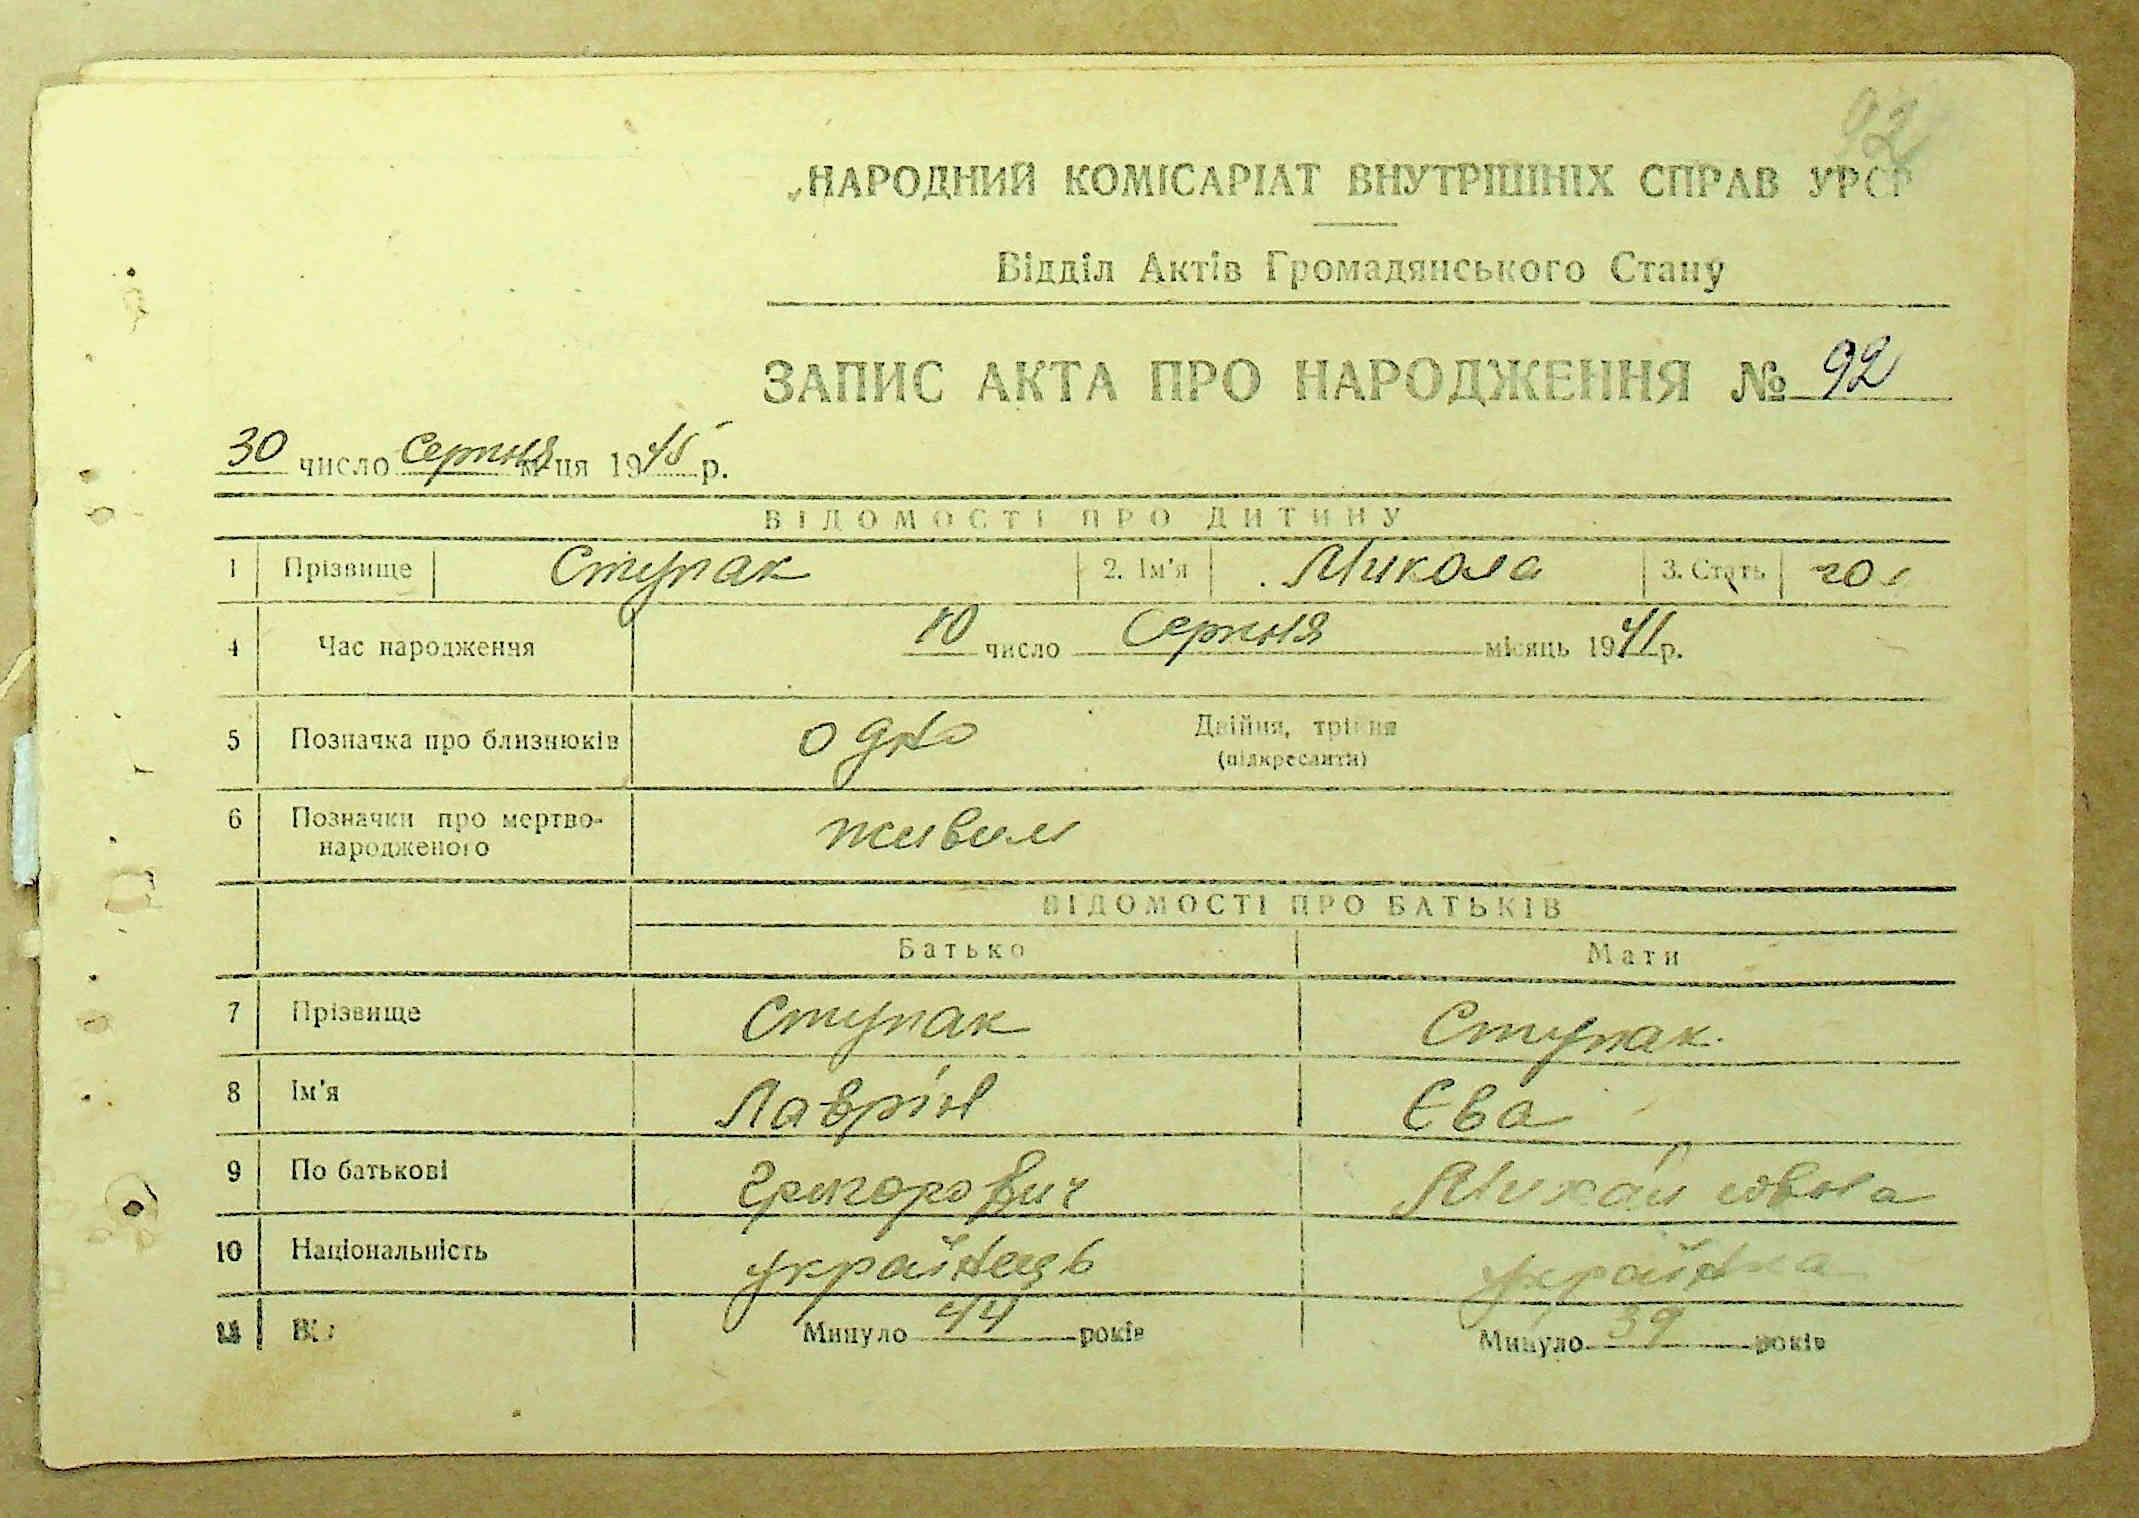 92
НАРОДНИЙ КОМІСАРІАТ ВНУТРІШНІХ СПРАВ УРСР
Відділ Актів Громадянського Стану
ЗАПИС АКТА ПРО НАРОДЖЕННЯ № 92
30 число Серпня м-ця 1945 р.
ВІДОМОСТІ ПРО ДИТИНУ
1 Прізвище Ступак 2. Ім'я Микола 3. Стать чол
4 Час народження 10 число Серпня місяць 1941 р.
5 Позначка про близнюків одно Двійня, трійня
(підкреслити)
6 Позначки про мертво-
народженого живим
ВІДОМОСТІ ПРО БАТЬКІВ
Батько Мати
7 Прізвище Ступак Ступак
8 Ім'я Лаврін Єва
9 По батькові Григорович Михайловна
10 Національність українець українка
11 Минуло 44 років Минуло 39 років